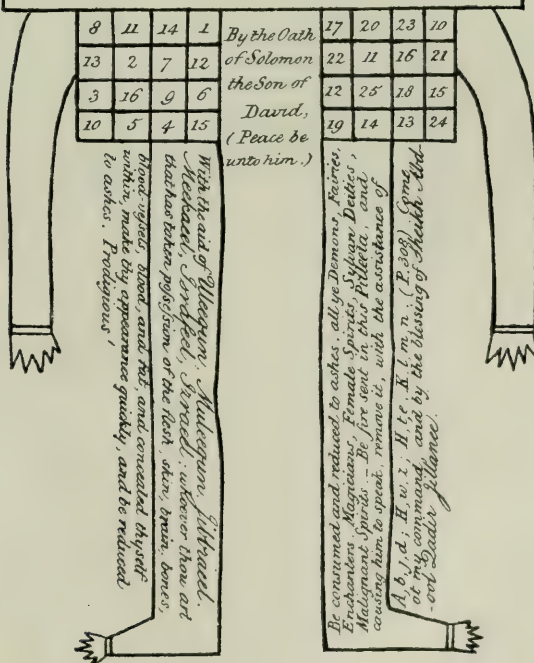 8 11 14 1
13 2 7 12
3 16 9 6
10 5 4 15
By the Oath
of Solomon
the Son of
David,
(Peace be
unto him.)
17 20 23 10
22 11 16 21
12 25 18 15
19 14 13 24
With the aid of Uleequn, Muleequn, Jibraeel,
Meekaeel, Israfeel, Izraeel; whoever thou art
that has taken possession of the flesh, skin, brain, bones,
blood-vessels, blood, and fat, and concealed thyself
within, make thy appearance quickly, and be reduced
to ashes. Prodigious!
Be consumed and reduced to ashes, all ye Demons, Fairies,
Enchanters, Magicians, Female Spirits, Sylvan Deities,
Malignant Spirits. – Be fire sent in this Puleeta, and
causing him to speak, remove it, with the assistance of
A, b, j, d; H, w, z; H, t, e; K, l, m, n; (P. 308) Come
at my command, and by the blessing of Sheikh Abd-
-ool Qadir Jillanee.